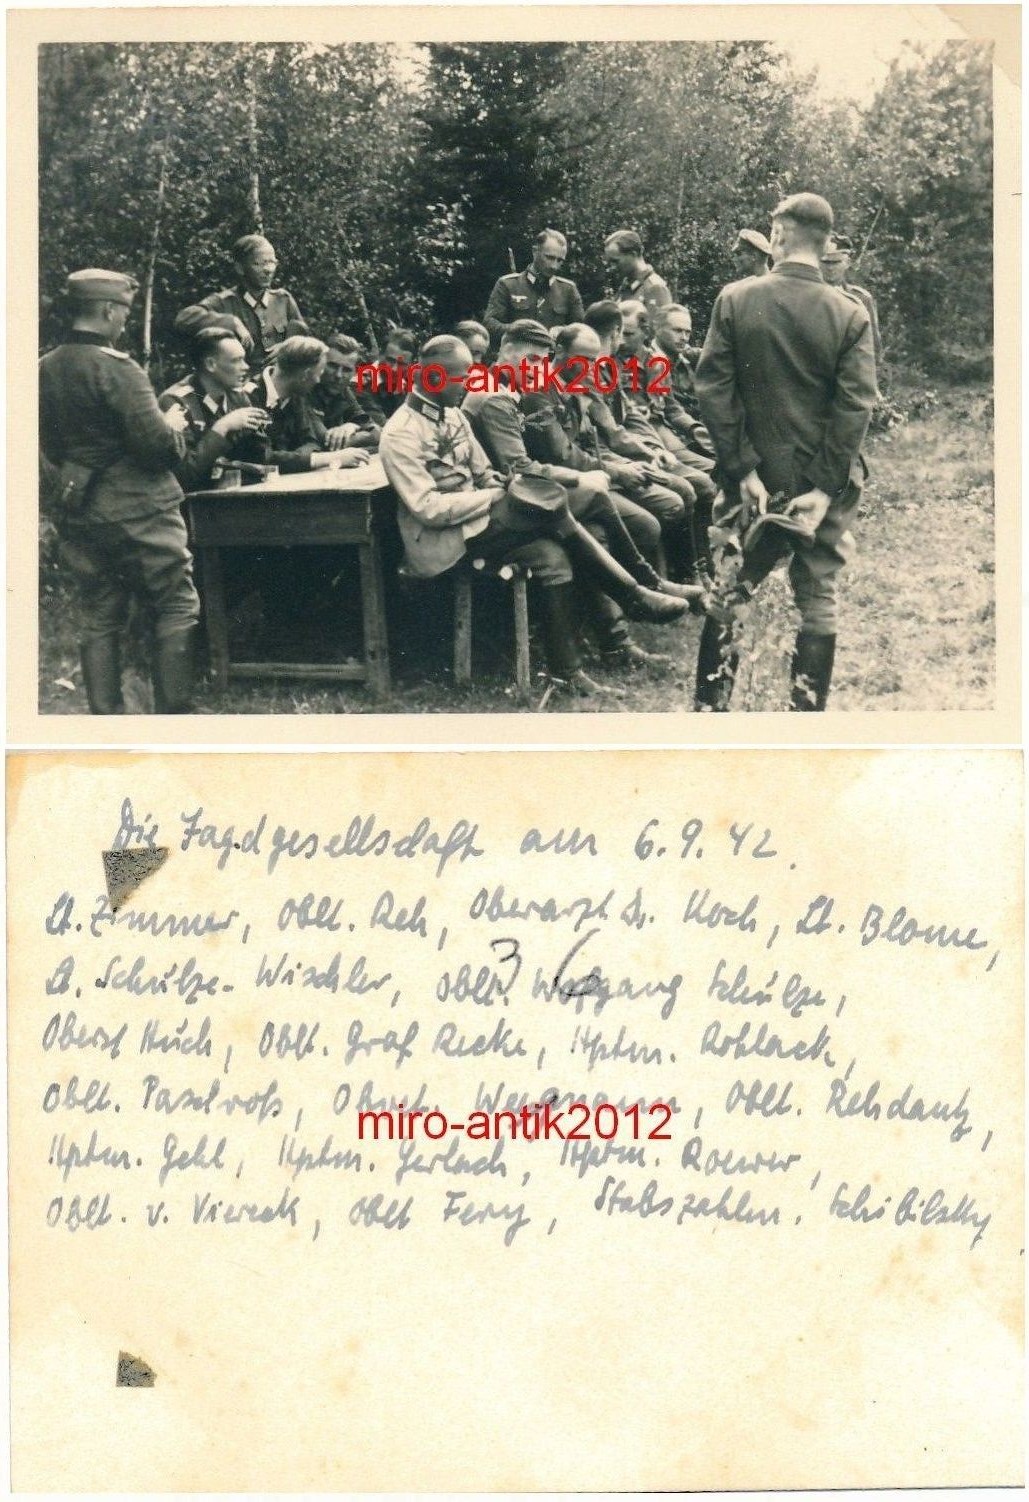 miro-antik2012
Die Jagdgesellschaft am 6.9.42.
Lt. Zimmer, Oblt. Reh, Oberarzt Dr. Koch, Lt. Blome,
36
Lt. Schulze-Wischler, Oblt. Wolfgang Schulze,
Oberst Huch, Oblt. Graf Recke, Hptm. Rohlack,
Oblt. Paschroß, Wegmann, Oblt. Rehdantz,
miro-antik2012
Hptm. Gehl, Hptm. Gerlach, Hptm. Roewer,
Oblt. v. Viereck, Oblt Ferry, Stabszahlm. Schibilsky